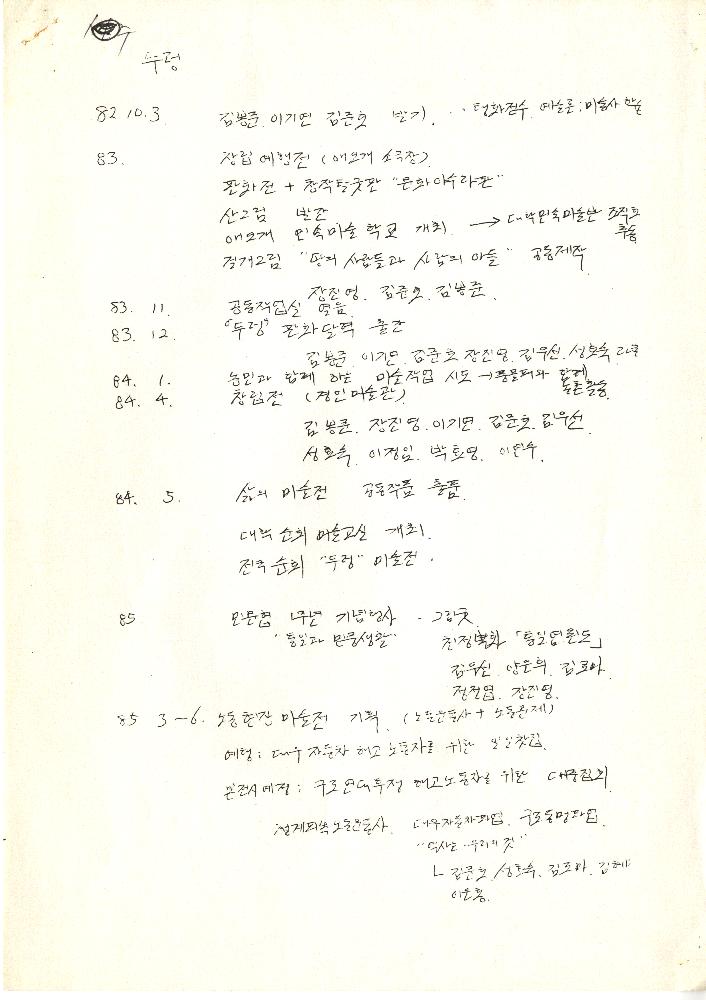 두렁
82 10. 3. 김봉준. 이기연 김준호 반기. 탱화전수. 예술론; 미술사 학습
83. 창립 예행전 (애오개 소극장).
판화전 + 창작탈굿판 "문화아수라판"
산그림 발간
애오개 민속미술학교 개최. → 대학민속미술반 조직화
걸개그림 "땅의 사람들과 사람의 아들" 공동제작
장진영. 김준호. 김봉준.
83. 11. 공동작업실 열음.
83. 12. "두렁" 판화달력 출간
김봉준. 이기연. 김준호 장진영. 김우선. 성효숙
84. 1. 농민과 함께 하는 미술작업 시도 → 풍물패와 함께
84. 4. 창립전 (경인미술관)
김봉준. 장진영. 이기연. 김준호. 김우선.
성효숙. 이정임. 박효영. 이연수.
84. 5. 삶의 미술전 공동작품 출품.
대학 순회 미술교실 개최.
전국 순회 "두렁" 미술전.
85 민문협 1주년 기념행사 - 그림굿
"통일과 민중생활" 「통일염원도」
김우선. 양은희. 김포아.
정정엽. 장진영.
85 3-6. 노동현장 미술전 기획. (노동운동사 + 노동문제)
예행; 대우 자동차 해고 노동자를 위한 일일찻집.
본전시예정; 구로연대투쟁 해고노동자를 위한 대중집회
일제피속노동운동사. 대우자동차파업. 구로동맹파업.
"역사는 우리의 것"
└ 김준호. 성효숙. 김포아.
이은홍.